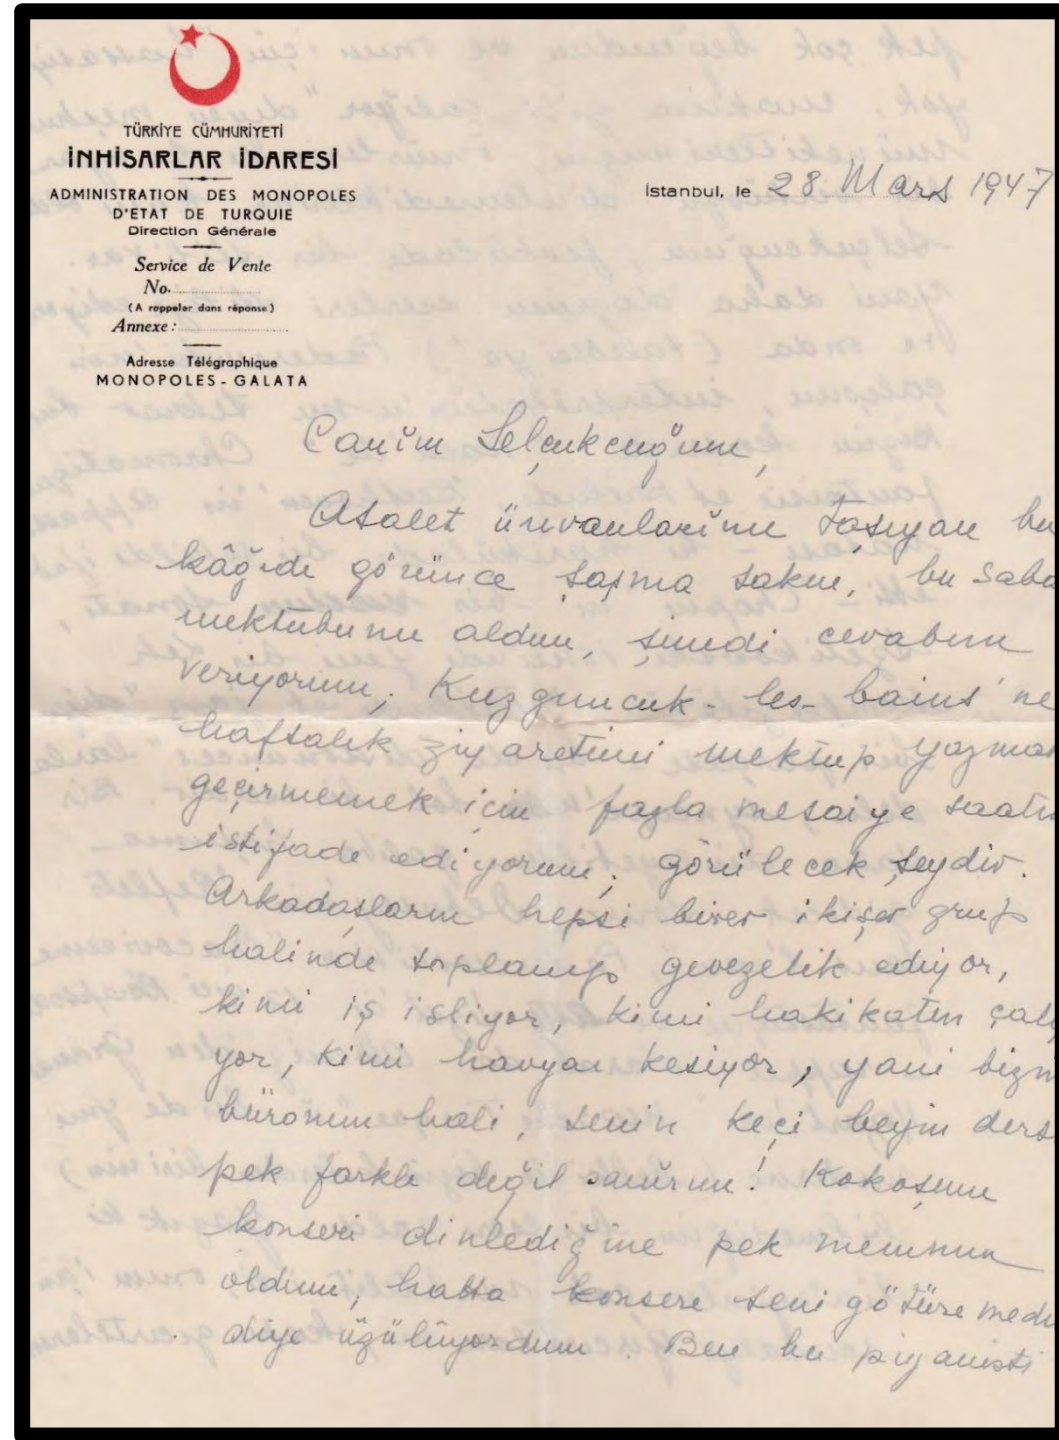 TÜRKİYE CÜMHURİYETİ
İNHİSARLAR İDARESİ
ADMINISTRATION DES MONOPOLES
D'ETAT DE TURQUIE
Direction Générale
Service de Vente
No.
(A rappeler dans réponse)
Annexe :
Adresse Télégraphique
MONOPOLES - GALATA
İstanbul, le 28 Mars 1947
Canım Selçukcuğum,
Asalet ünvanlarını taşıyan bu
kâğıdı görünce şaşma sakın, bu saba
mektubunu aldım, şimdi cevabını
veriyorum; Kuzguncuk-les-bains'ne
haftalık ziyaretimi mektup yazma
geçirmemek için fazla mesaiye saatin
istifade ediyorum; görülecek şeydir.
Arkadaşların hepsi birer ikişer grup
halinde toplanıp gevezelik ediyor,
kimi iş işliyor, kimi hakikaten çalı
yor, kimi havyar kesiyor, yani bizim
büronun hali, senin keçi beyin ders
pek farklı değil sanırım! Kokoşumu
konseri dinlediğine pek memnun
oldum, hatta konsere seni götüremedi
diye üzülüyordum. Ben bu piyanisti